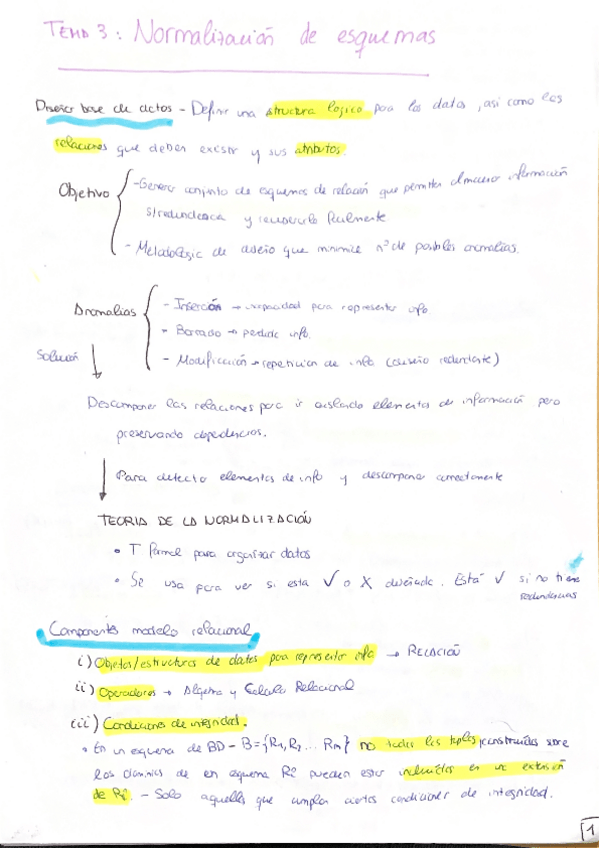 TEMA 3: Normalización de esquemas
Diseñar base de datos - Definir una structura logica para los datos, asi como las
relaciones que deben existir y sus atributos.
Objetivo
- Generar conjunto de esquemas de relación que permitan almacenar información
s/redundancia y recuperarla facilmente
- Metodologia de diseño que minimice nº de posibles anomalías.
Anomalías
- Inserción → incapacidad para representar info
- Borrado → perdida info.
- Modificación → repeticion de info (diseño redundante)
Solución
Descomponer las relaciones para ir aislando elementos de información pero
preservando dependencias.
Para detectar elementos de info y descomponer correctamente
TEORIA DE LA NORMALIZACIÓN
• T formal para organizar datos
• Se usa para ver si esta √ o X diseñada. Está √ si no tiene
redundancias
Componentes modelo relacional
i) Objetos/estructuras de datos para representar info → RELACIÓN
ii) Operadores → Algebra y Calculo Relacional
iii) Condiciones de integridad.
• En un esquema de BD - B={R1, R2 ... Rm} no todas las tuplas construidas sobre
los dominios de un esquema Ri pueden estar incluidas en una extensión
de Ri. - Solo aquellas que cumplan ciertas condiciones de integridad.
1